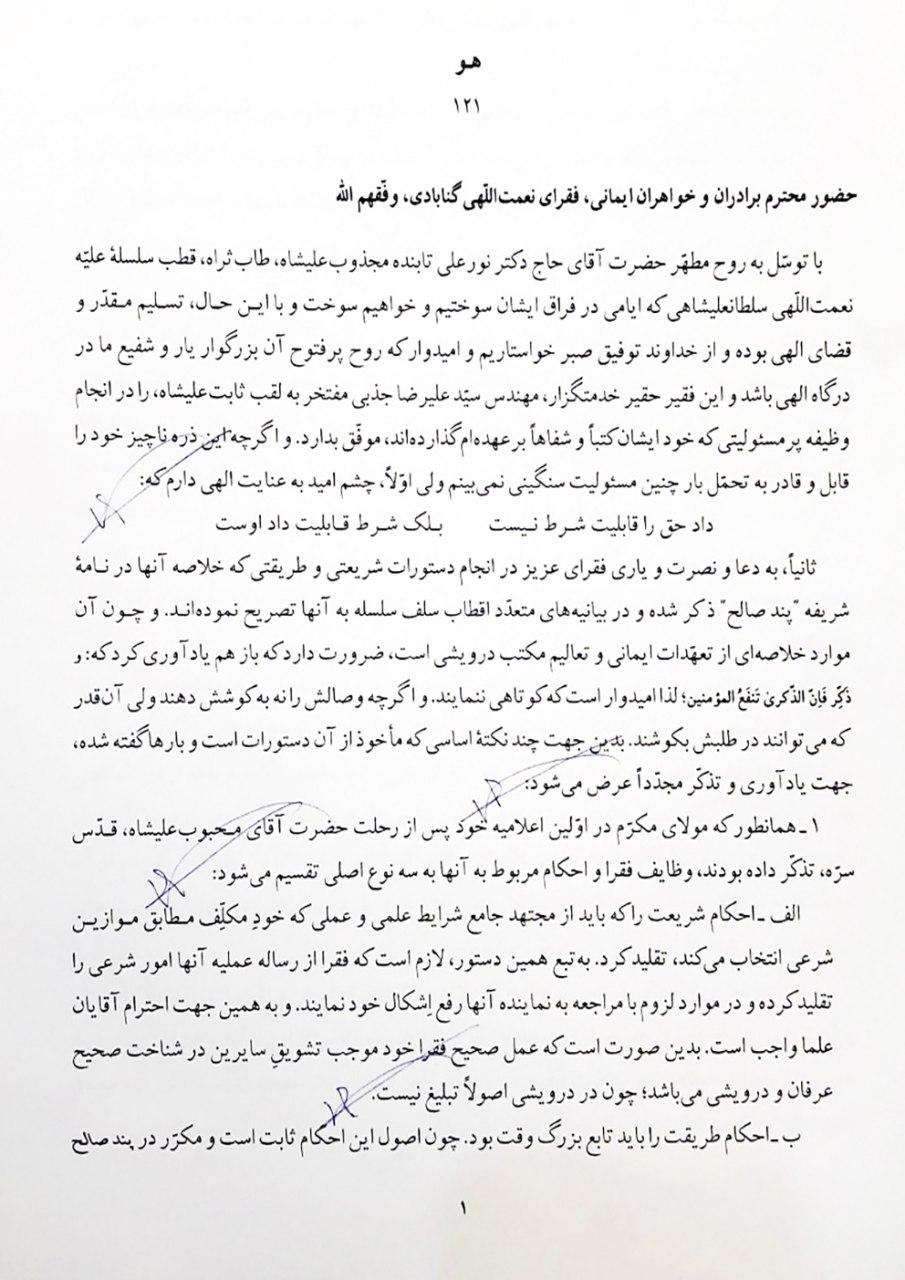 هـو
۱۲۱
حضور محترم برادران و خواهران ایمانی، فقرای نعمت‌اللّهی گنابادی، وفّقهم الله
با توسّل به روح مطهّر حضرت آقای حاج دکتر نورعلی تابنده مجذوب‌علیشاه، طاب‌ثراه، قطب سلسلهٔ علیّه
نعمت‌اللّهی سلطانعلیشاهی که ایامی در فراق ایشان سوختیم و خواهیم سوخت و با ایـن حـال، تسلیم مـقدّر و
قضای الهی بوده و از خداوند توفیق صبر خواستاریم و امیدوار که روح پرفتوح آن بزرگوار یار و شفیع ما در
درگاه الهی باشد و این فقیر حقیر خدمتگزار، مهندس سیّد علیرضا جذبی مفتخر به لقب ثابت‌علیشاه، را در انجام
وظیفه پر مسئولیتی که خود ایشان کتباً و شفاهاً بر عهده‌ام گذارده‌اند، موفّق بدارد. و اگرچه این ذره ناچیز خود را
قابل و قادر به تحمّل بار چنین مسئولیت سنگینی نمی‌بینم ولی اوّلاً، چشم امید به عنایت الهی دارم که:
داد حق را قابلیت شـرط نـیست بـلک شـرط قـابلیت داد اوست
ثانیاً، به دعا و نصرت و یاری فقرای عزیز در انجام دستورات شریعتی و طریقتی که خلاصه آنها در نـامهٔ
شریفه "پند صالح" ذکر شده و در بیانیه‌های متعدّد اقطاب سلف سلسله به آنها تصریح نموده‌انـد. و چـون آن
موارد خلاصه‌ای از تعهّدات ایمانی و تعالیم مکتب درویشی است، ضرورت دارد که باز هم یادآوری کرد که: و
ذَکِّر فَاِنّ الذّکریٰ تَنفَعُ المؤمنین؛ لذا امیدوار است که کوتاهی ننمایند. و اگرچه وصالش را نه به کوشش دهند ولی آن‌قدر
که می‌توانند در طلبش بکوشند. بدین جهت چند نکتهٔ اساسی که مأخوذ از آن دستورات است و بارها گفته شده،
جهت یادآوری و تذکّر مجدّداً عرض می‌شود:
۱ ـ همانطور که مولای مکرّم در اوّلین اعلامیه خود پس از رحلت حضرت آقای محبوب‌علیشاه، قـدّس
سرّه، تذکّر داده بودند، وظایف فقرا و احکام مربوط به آنها به سه نوع اصلی تقسیم می‌شود:
الف ـ احکام شریعت را که باید از مجتهد جامع شرایط علمی و عملی که خودِ مکلّف مـطابق مـوازیـن
شرعی انتخاب می‌کند، تقلید کرد. به تبع همین دستور، لازم است که فقرا از رساله عملیه آنها امور شرعی را
تقلید کرده و در موارد لزوم با مراجعه به نماینده آنها رفع اِشکال خود نمایند. و به همین جهت احترام آقایان
علما واجب است. بدین صورت است که عمل صحیح فقرا خود موجب تشویقِ سایرین در شناخت صحیح
عرفان و درویشی می‌باشد؛ چون در درویشی اصولاً تبلیغ نیست.
ب ـ احکام طریقت را باید تابع بزرگ وقت بود. چون اصول این احکام ثابت است و مکرّر در پند صالح
۱